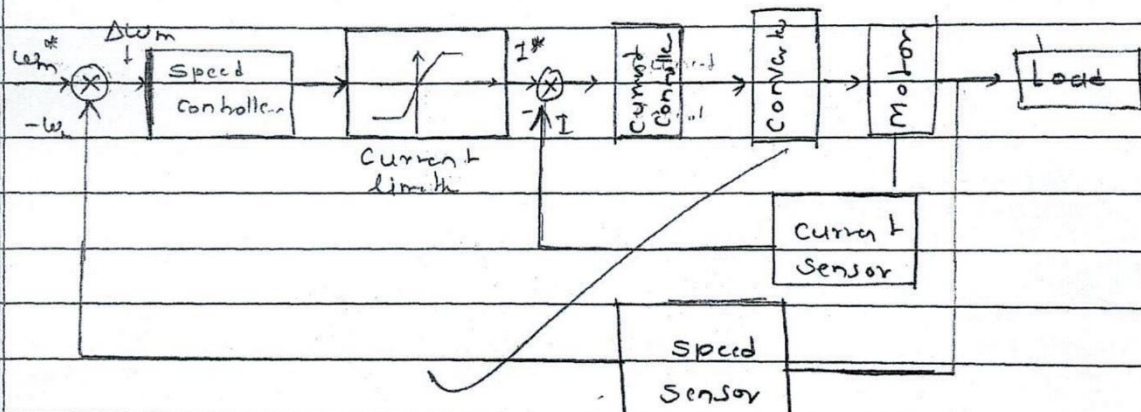 Δωm
ωm*
-ωm
Speed
Controller
Current
limiter
I*
- I
Current
Controller
Converter
Motor
Load
Current
Sensor
Speed
Sensor